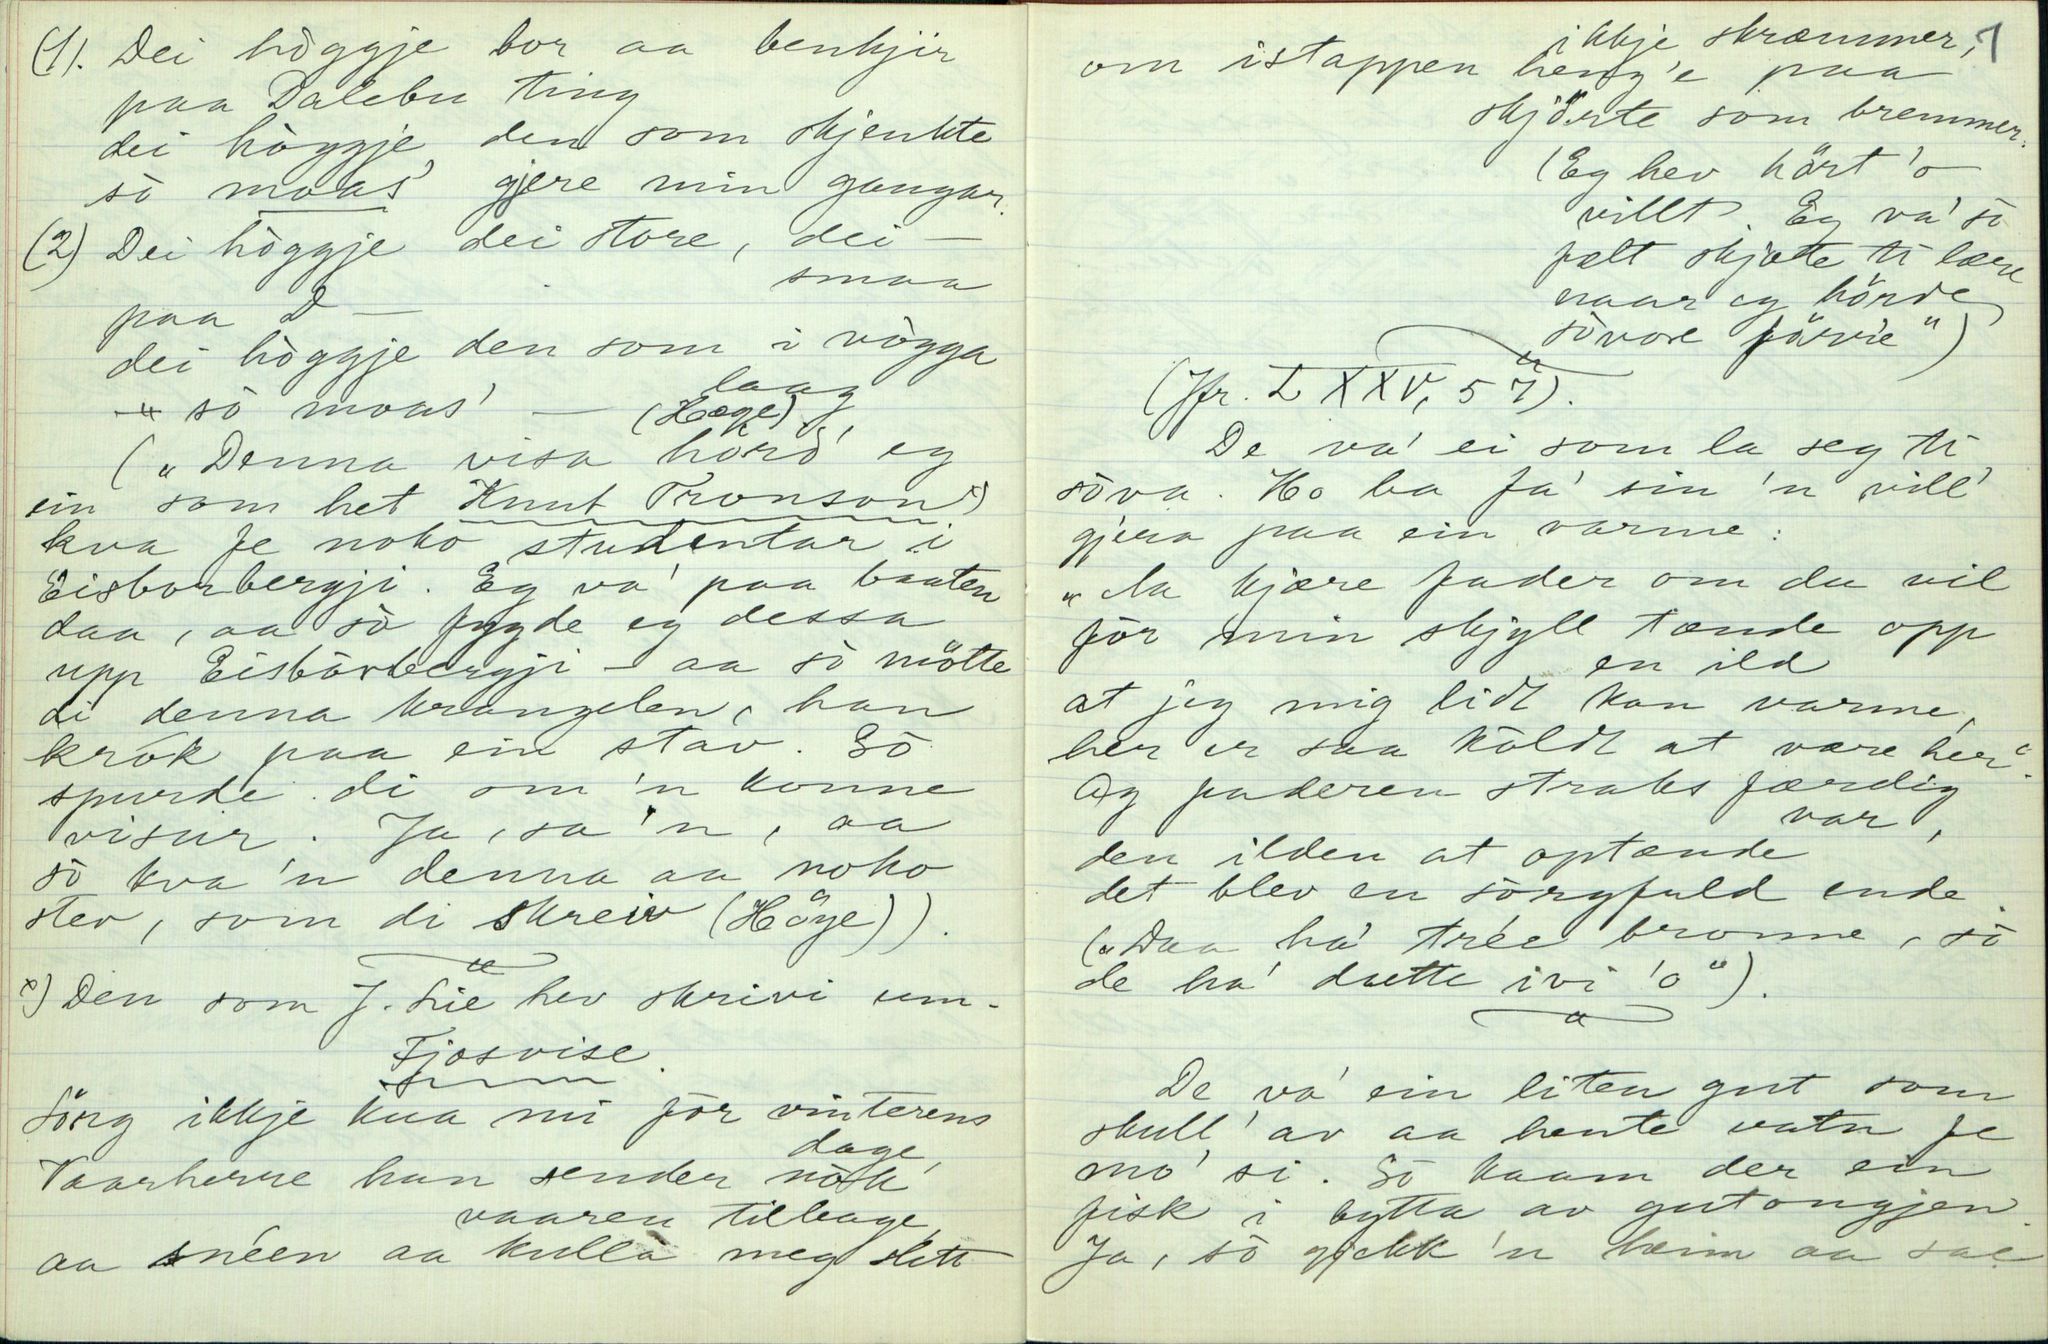 (1). Dei höggje bor aa benkjir
paa Dalebu ting
dei höggje den som skjenkte
sò moas' gjere min gangar.
(2) Dei höggje dei store, dei —
smaa
paa D —
dei höggje den som i vögga
laag
sò moas' — (Hæge).
(„Denna visa hörd' eg
ein som het Knut Tronson x)
kva fe noko studentar i
Eisborbergji. Eg va' paa baaten
daa, aa sò fygde eg dessa
upp Eisbörbergji — aa sò mötte
di denna krangelen, han
krók paa ein stav. Sò
spurde di om 'n konne
visur. Ja, sa 'n, aa
sò kva 'n denna aa noko
stev, som di skreiv (Höge)).
x) Den som J. Lie hev skrivi um.
Fjosvise.
Sörg ikkje kua mi för vinterens
dage,
Vaarherre han sender nòk
vaaren tilbage,
aa snéen aa kulla meg slett
7
ikkje skræmmer,
om istappen heng'e paa
skjörte som bremmer.
(Eg hev hört 'o
villt. Eg va' sò
fælt skjötte ti lære
naar eg hörde
sòvore förvie")
(Jfr. L XXV, 57).
De va' ei som la seg ti
söva. Ho ba fa' sin 'n vill'
gjera paa ein varme:
„Aa kjære fader om du vil
för min skjyll tænde opp
en ild
at jeg mig lidt kan varme,
her er saa koldt at være her".
Og faderen straks færdig
var,
den ilden at optænde
det blev en sörgfuld ende.
(„Daa ha' trée bronne, sò
de ha' dætte ivi 'o").
De va' ein liten gut som
skull' av aa hente vatn fe
mo' si. Sò kaam der ein
fisk i bytta av gutongjen.
Ja, sò gjekk 'n heim aa sae